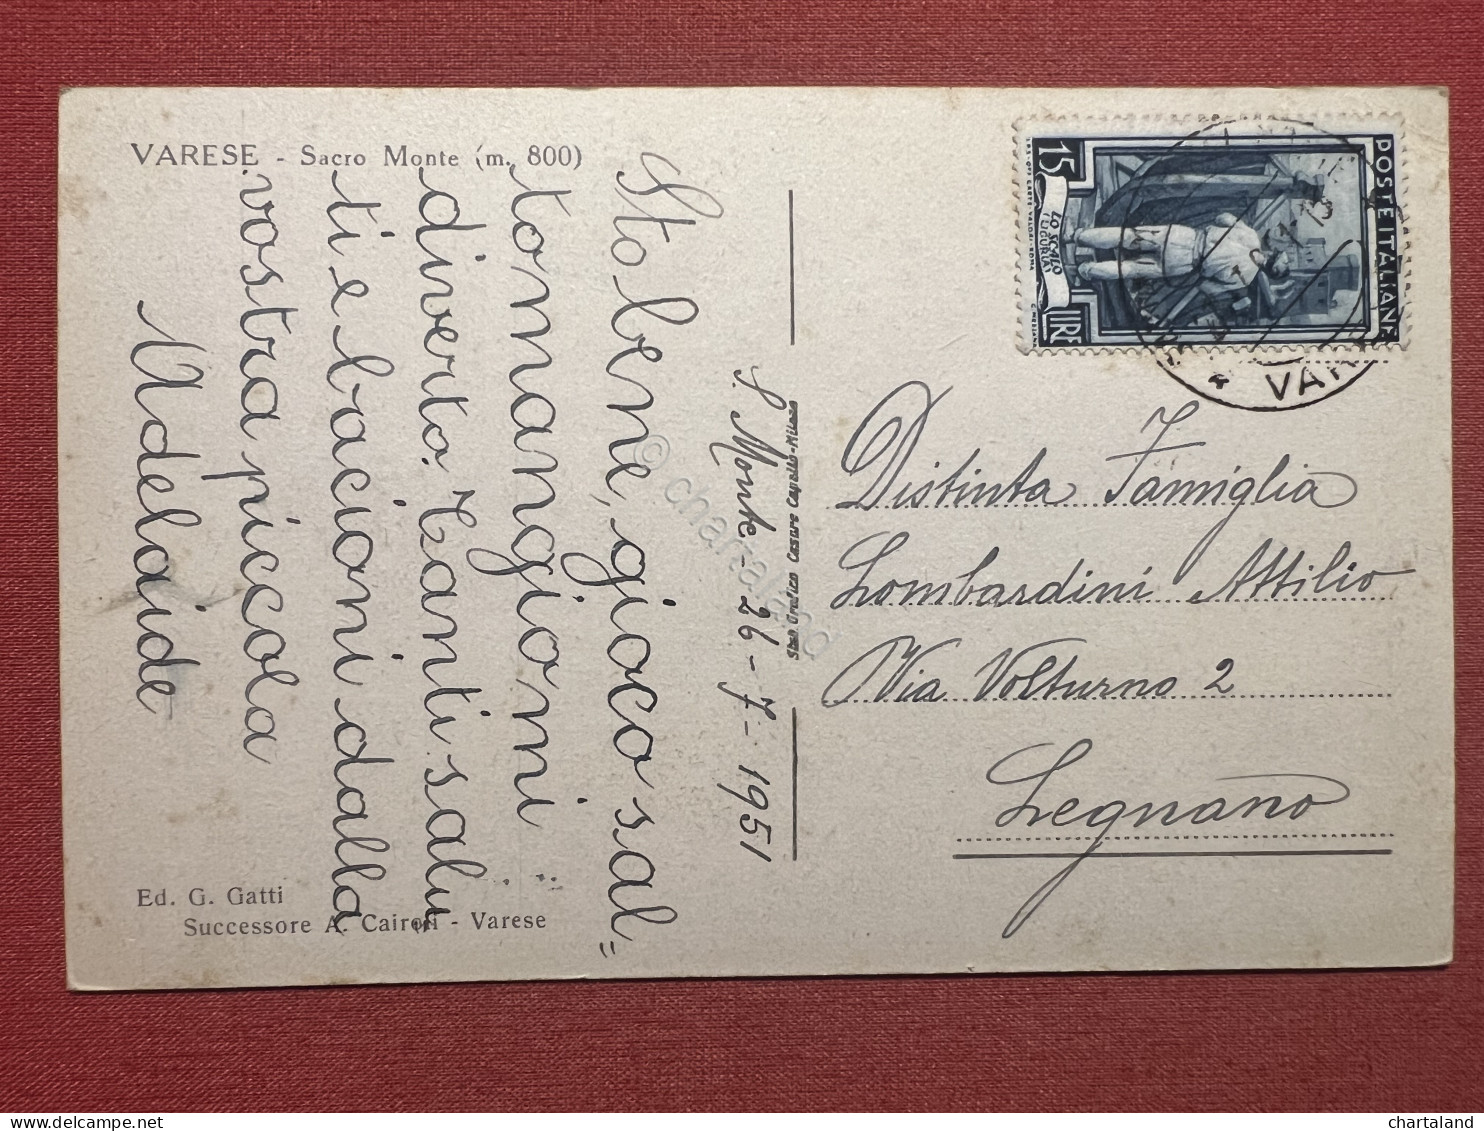 VARESE - Sacro Monte (m. 800)
Sto bene, gioco sal=
to mangio ni
diverto. Tanti salu
ti e bacioni dalla
vostra piccola
Adelaide
S. Monte - 26 - 7 - 1951
Stab. Grafico Cesare Capello-Milano
Ed. G. Gatti
Successore A. Cairoli - Varese
POSTE ITALIANE
15
LIRE
LO SCALO
LIGURIA
VAR
Distinta Famiglia
Lombardini Attilio
Via Volturno 2
Legnano
© chartaland
chartaland